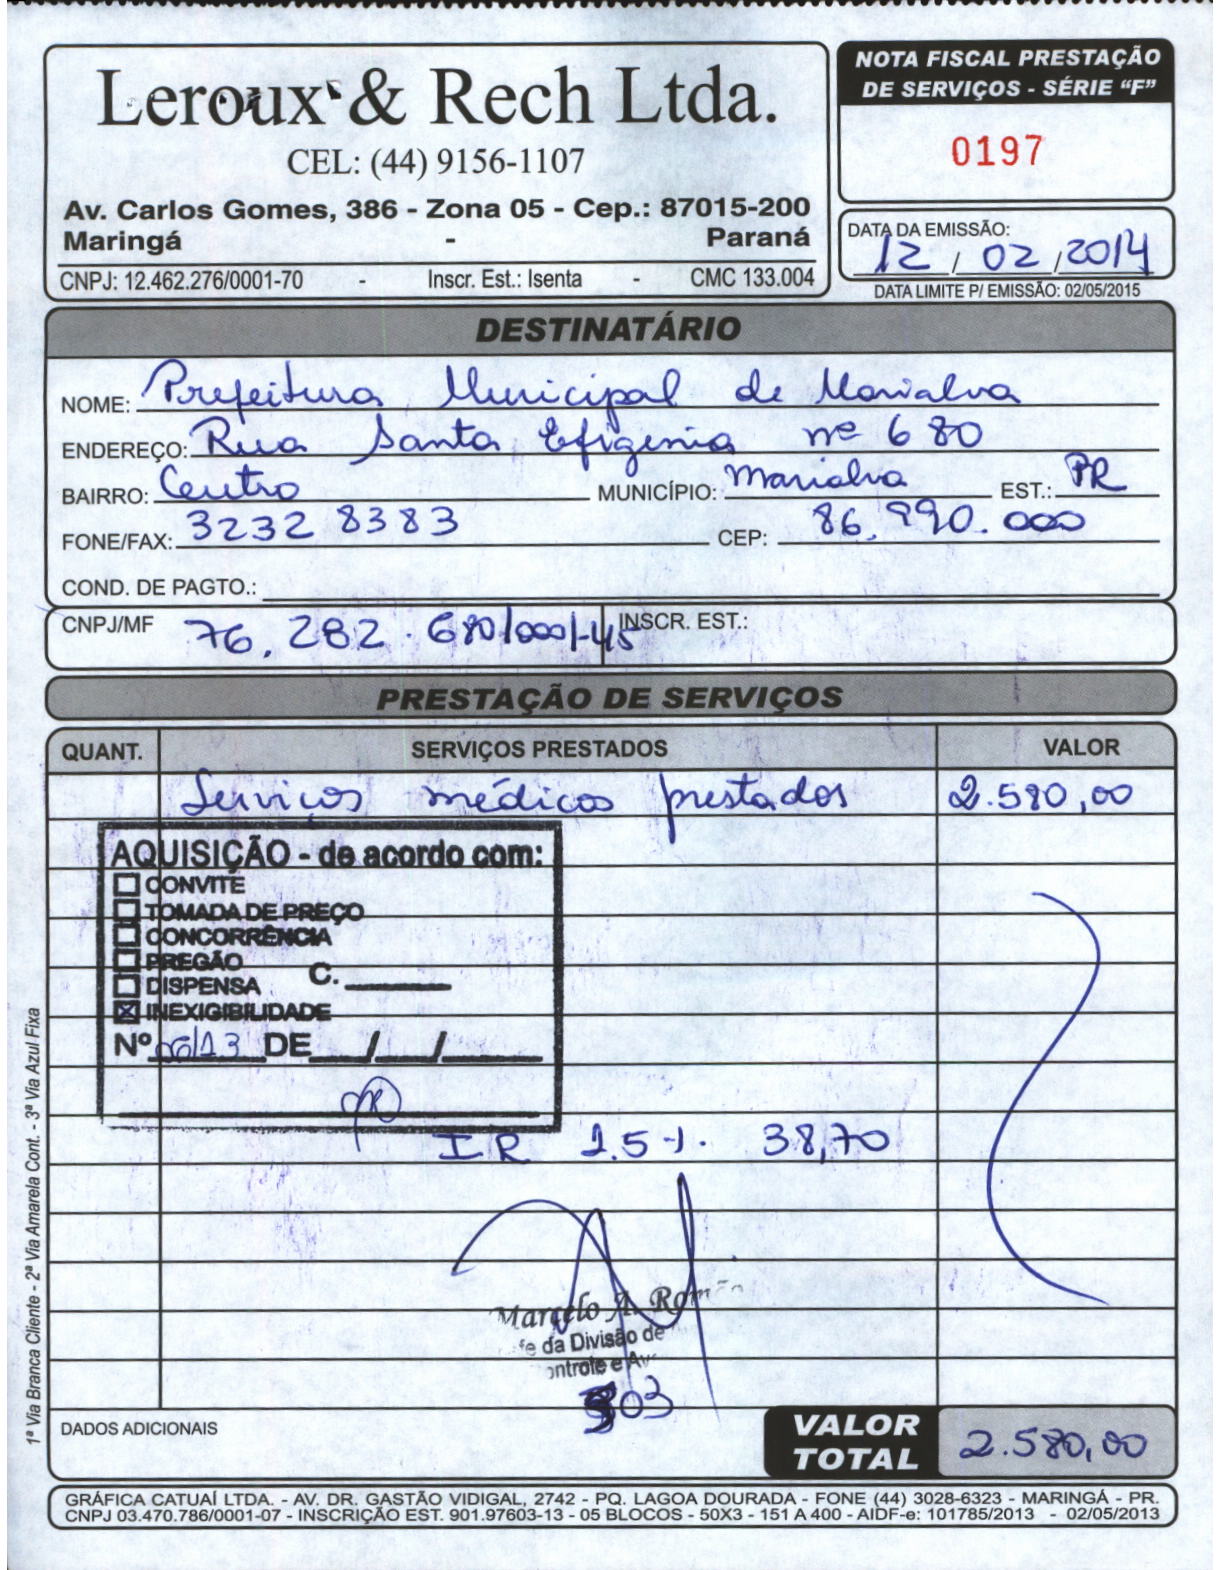 Leroux & Rech Ltda.
CEL: (44) 9156-1107
Av. Carlos Gomes, 386 - Zona 05 - Cep.: 87015-200
Maringá - Paraná
CNPJ: 12.462.276/0001-70 - Inscr. Est.: Isenta - CMC 133.004
NOTA FISCAL PRESTAÇÃO
DE SERVIÇOS - SÉRIE "F"
0197
DATA DA EMISSÃO:
12 / 02 / 2014
DATA LIMITE P/ EMISSÃO: 02/05/2015
DESTINATÁRIO
NOME: Prefeitura Municipal de Marialva
ENDEREÇO: Rua Santa Efigenia nº 680
BAIRRO: Centro MUNICÍPIO: Marialva EST.: PR
FONE/FAX: 3232 8383 CEP: 86.990.000
COND. DE PAGTO.:
CNPJ/MF 76.282.680/0001-45 INSCR. EST.:
PRESTAÇÃO DE SERVIÇOS
QUANT. SERVIÇOS PRESTADOS VALOR
Serviços médicos prestados 2.580,00
AQUISIÇÃO - de acordo com:
CONVITE
TOMADA DE PREÇO
CONCORRÊNCIA
PREGÃO C.
DISPENSA
INEXIGIBILIDADE
Nº 06/13 DE / /
IR 1.5 %. 38,70
Marcelo A.
da Divisão de
303
DADOS ADICIONAIS
VALOR TOTAL 2.580,00
GRÁFICA CATUAÍ LTDA. - AV. DR. GASTÃO VIDIGAL, 2742 - PQ. LAGOA DOURADA - FONE (44) 3028-6323 - MARINGÁ - PR.
CNPJ 03.470.786/0001-07 - INSCRIÇÃO EST. 901.97603-13 - 05 BLOCOS - 50X3 - 151 A 400 - AIDF-e: 101785/2013 - 02/05/2013
1ª Via Branca Cliente - 2ª Via Amarela Cont. - 3ª Via Azul Fixa